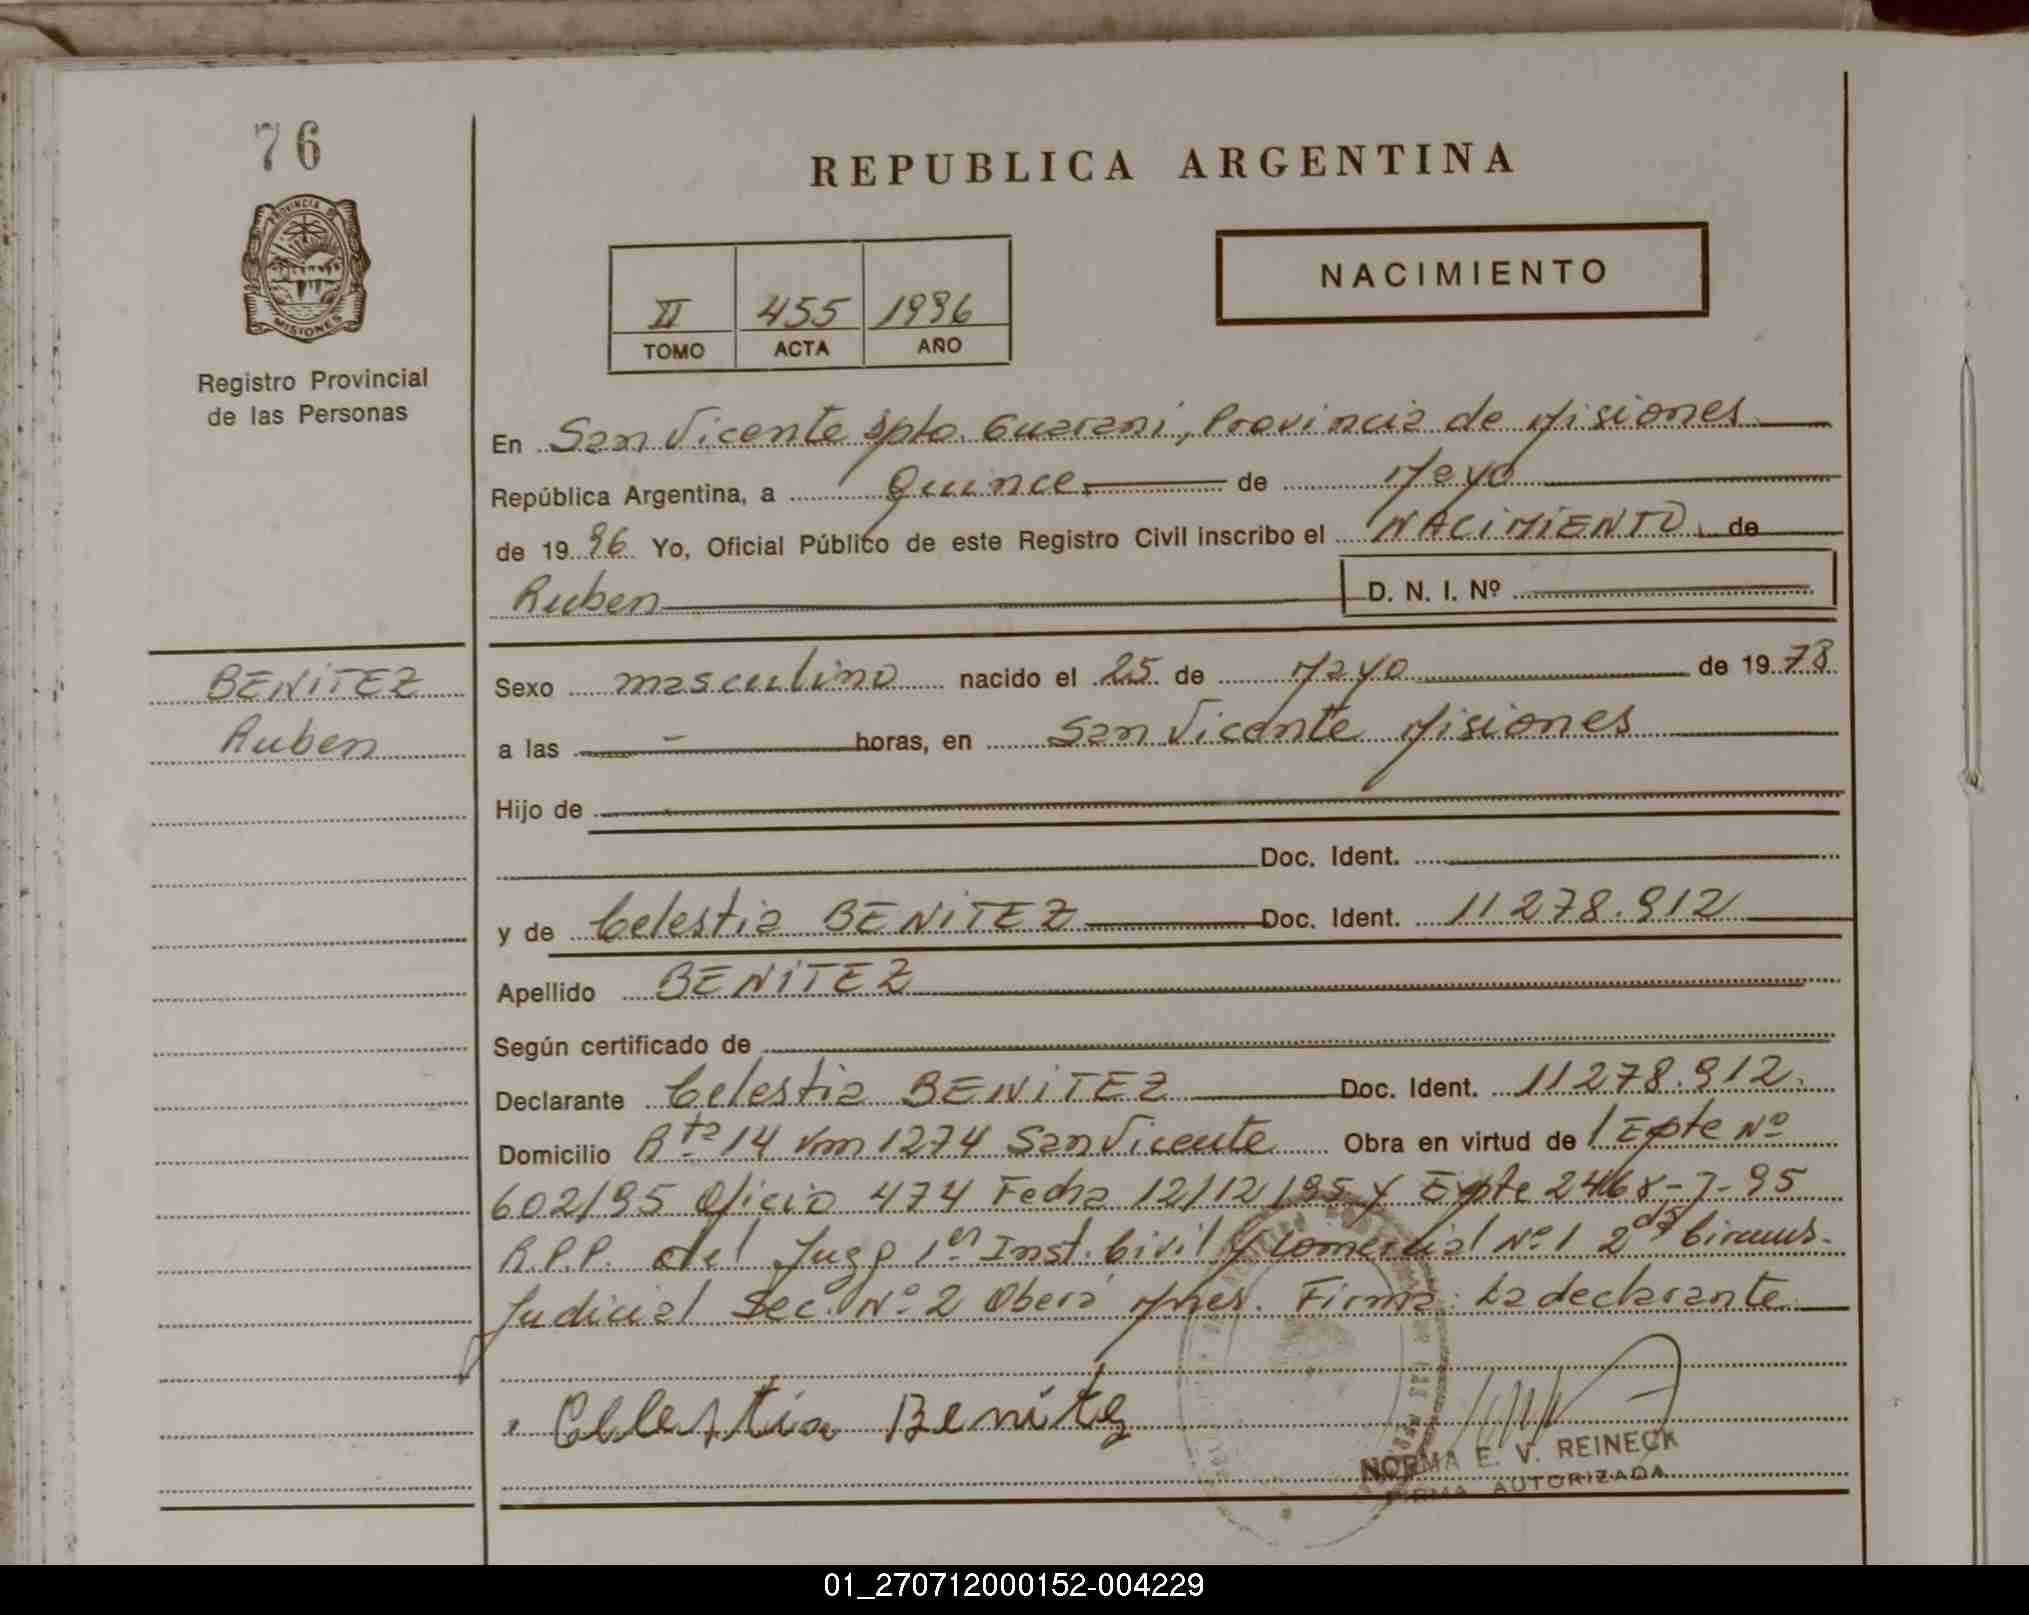 76
REPUBLICA ARGENTINA
PROVINCIA DE
MISIONES
Registro Provincial
de las Personas
NACIMIENTO
II 455 1996
TOMO ACTA AÑO
En San Vicente Dpto. Guarani, Provincia de Misiones
República Argentina, a Quince de Mayo
de 19 96 Yo, Oficial Público de este Registro Civil inscribo el NACIMIENTO de
Ruben D. N. I. Nº
BENITEZ
Ruben
Sexo masculino nacido el 25 de Mayo de 19 78
a las horas, en San Vicente Misiones
Hijo de
Doc. Ident.
y de Celestia BENITEZ Doc. Ident. 11278.912
Apellido BENITEZ
Según certificado de
Declarante Celestia BENITEZ Doc. Ident. 11278.912.
Domicilio Rta 14 Km 1274 San Vicente Obra en virtud de Expte Nº
602/95 Oficio 474 Fecha 12/12/95 y Expte 2468-7-95
R.P.P. del Juzg 1er Inst. Civil y Comercial Nº 1 2da Circuns-
Judicial Sec. Nº 2 Oberá Mnes. Firma: La declarante
Celestia Benitez
NORMA E. V. REINECK
FIRMA AUTORIZADA
01_270712000152-004229